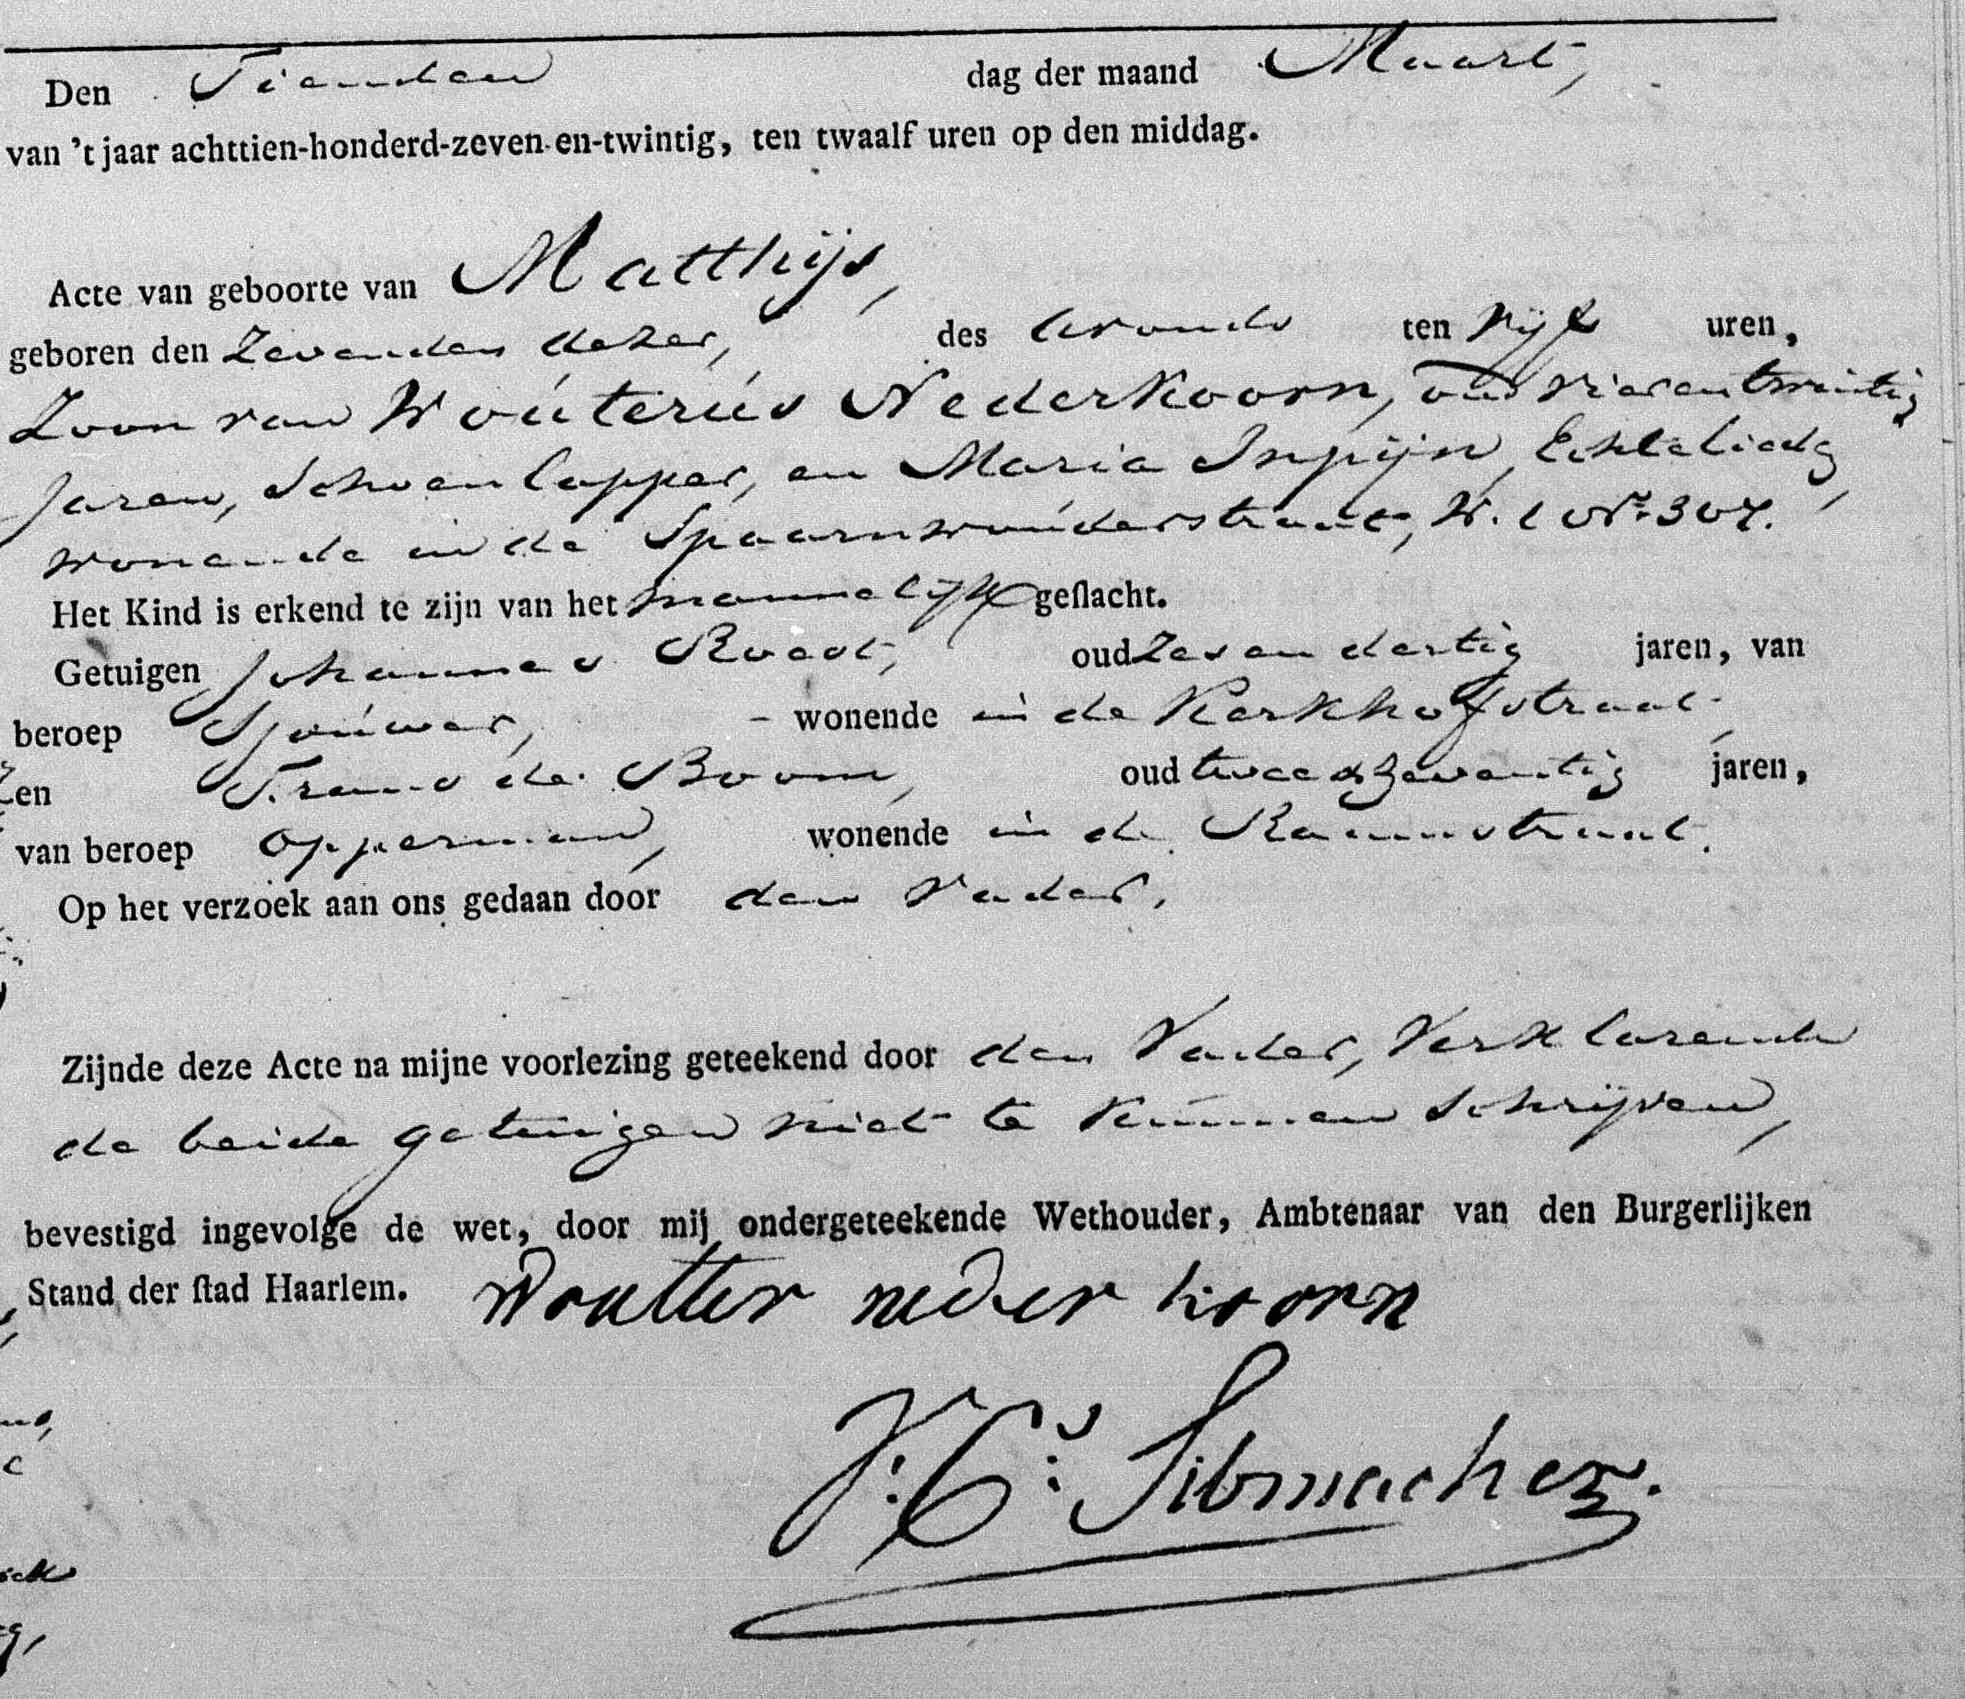 Den Tienden dag der maand Maart,
van 't jaar achttien-honderd-zeven-en-twintig, ten twaalf uren op den middag.
Acte van geboorte van Matthijs,
geboren den Zevenden dezer, des avonds ten vijf uren,
Zoon van Wouterús Nederkoorn, oud vierentwintig
Jaren, Schoenlapper, en Maria Inpijn, Echtelieds,
wonende in de Spaarnwouderstraat, W. 1 N.º 307.
Het Kind is erkend te zijn van het mannelijk geslacht.
Getuigen Johannes Roest, oud Zesendertig jaren, van
beroep Sjouwer, - wonende in de Kerkhofstraat,
en Frans de Boom, oud twee & Zeventig jaren,
van beroep opperman, wonende in de Raamstraat.
Op het verzoek aan ons gedaan door den Vader.
Zijnde deze Acte na mijne voorlezing geteekend door den Vader, Verklarende
de beide getuigen niet te kunnen Schrijven,
bevestigd ingevolge de wet, door mij ondergeteekende Wethouder, Ambtenaar van den Burgerlijken
Stand der stad Haarlem. Woutter neder koorn
J: C: Sibmacher.